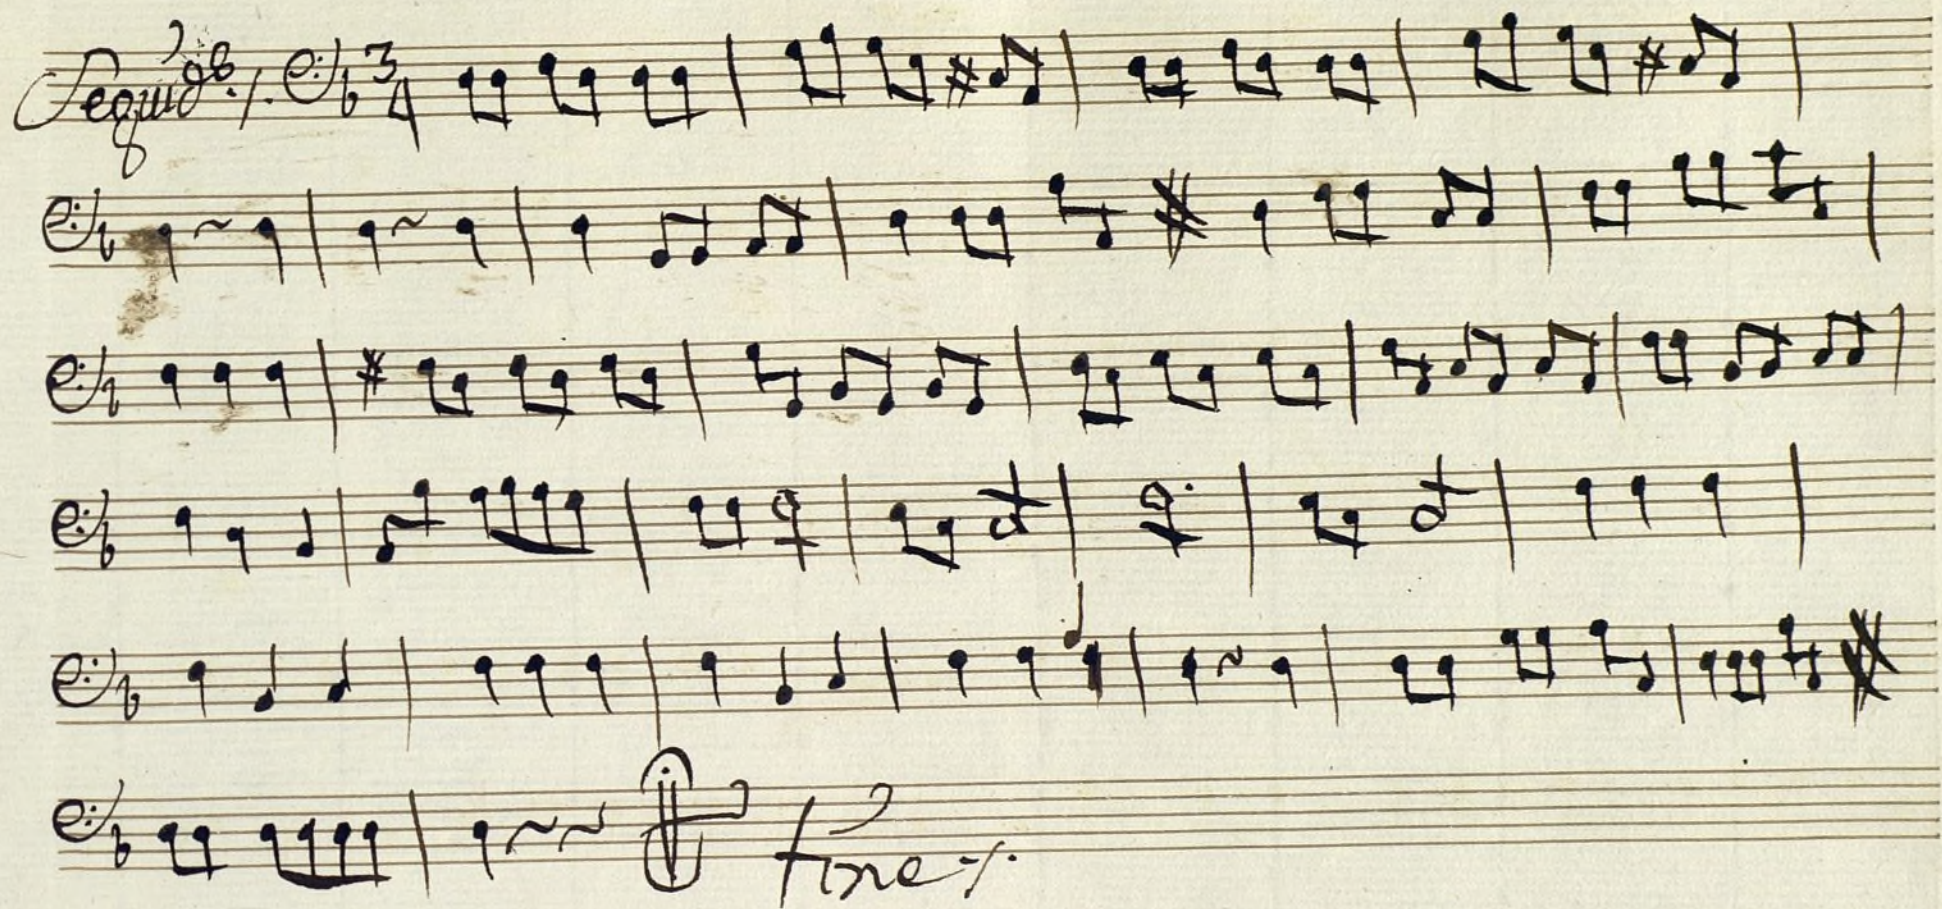 Seguid.s 3/4
fine